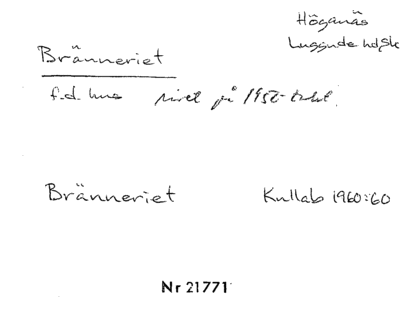 Höganäs
Luggude hd, Sk
Bränneriet
f.d. hus rivet på 1950-talet.
Bränneriet Kullab 1960:60
Nr 21771